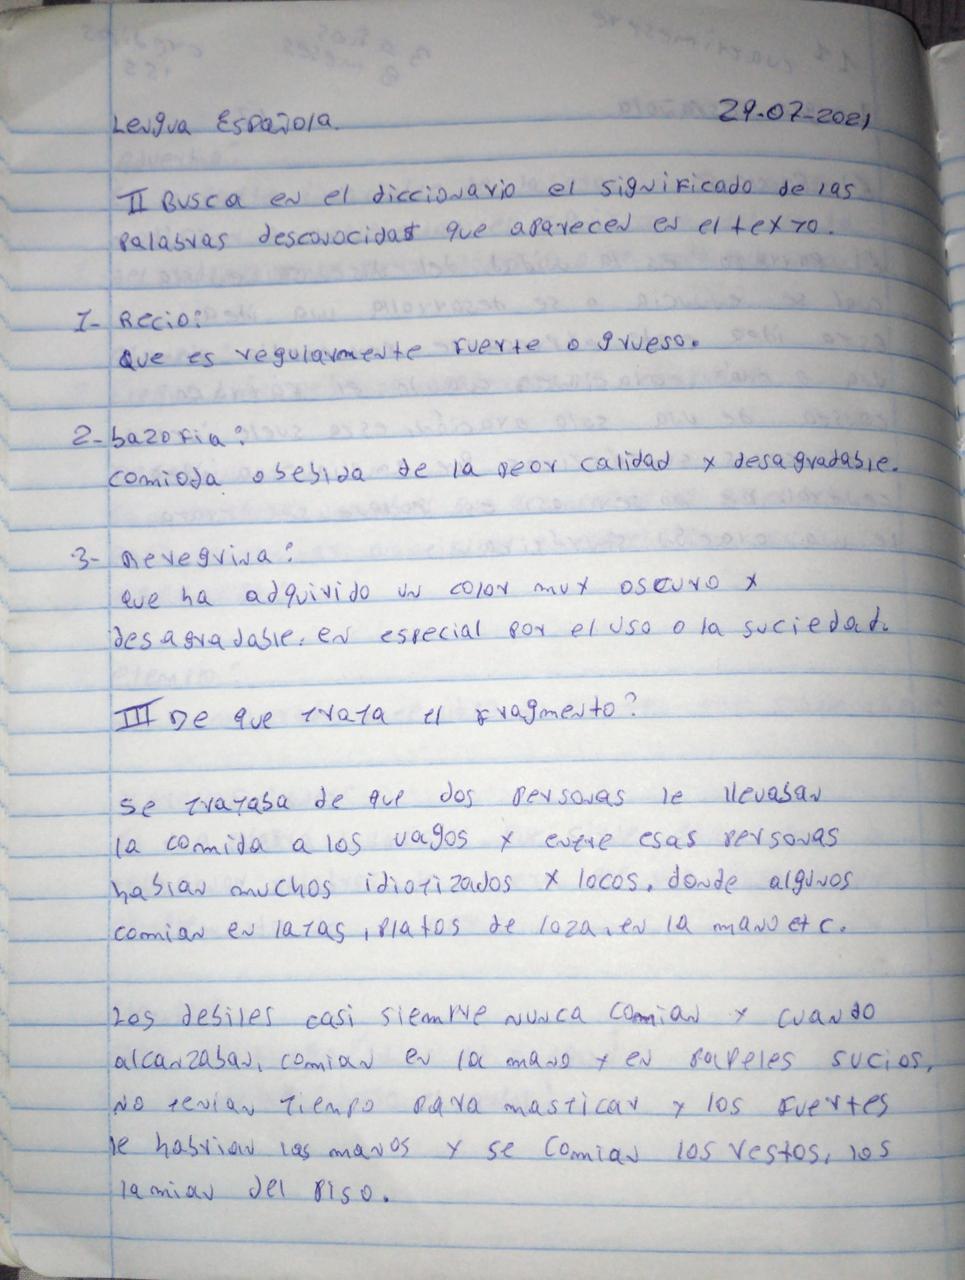 Lengua Española. 29-07-2021
II Busca en el diccionario el significado de las
palabras desconocidas que aparecen en el texto.
1- Recio:
Que es regularmente fuerte o grueso.
2- bazofia:
comioda o bebida de la peor calidad y desagradable.
3- Peregrina:
que ha adquirido un color muy oscuro y
desagradable. en especial por el uso o la suciedad.
III De que trata el fragmento?
Se trataba de que dos personas le llevaban
la comida a los vagos y entre esas personas
habian muchos idiotizados y locos, donde algunos
comian en latas, platos de loza, en la mano etc.
Los debiles casi siempre nunca comian y cuando
alcanzaban, comian en la mano y en papeles sucios,
no tenian tiempo para masticar y los fuertes
le habrian las manos y se comian los restos, los
lamian del piso.